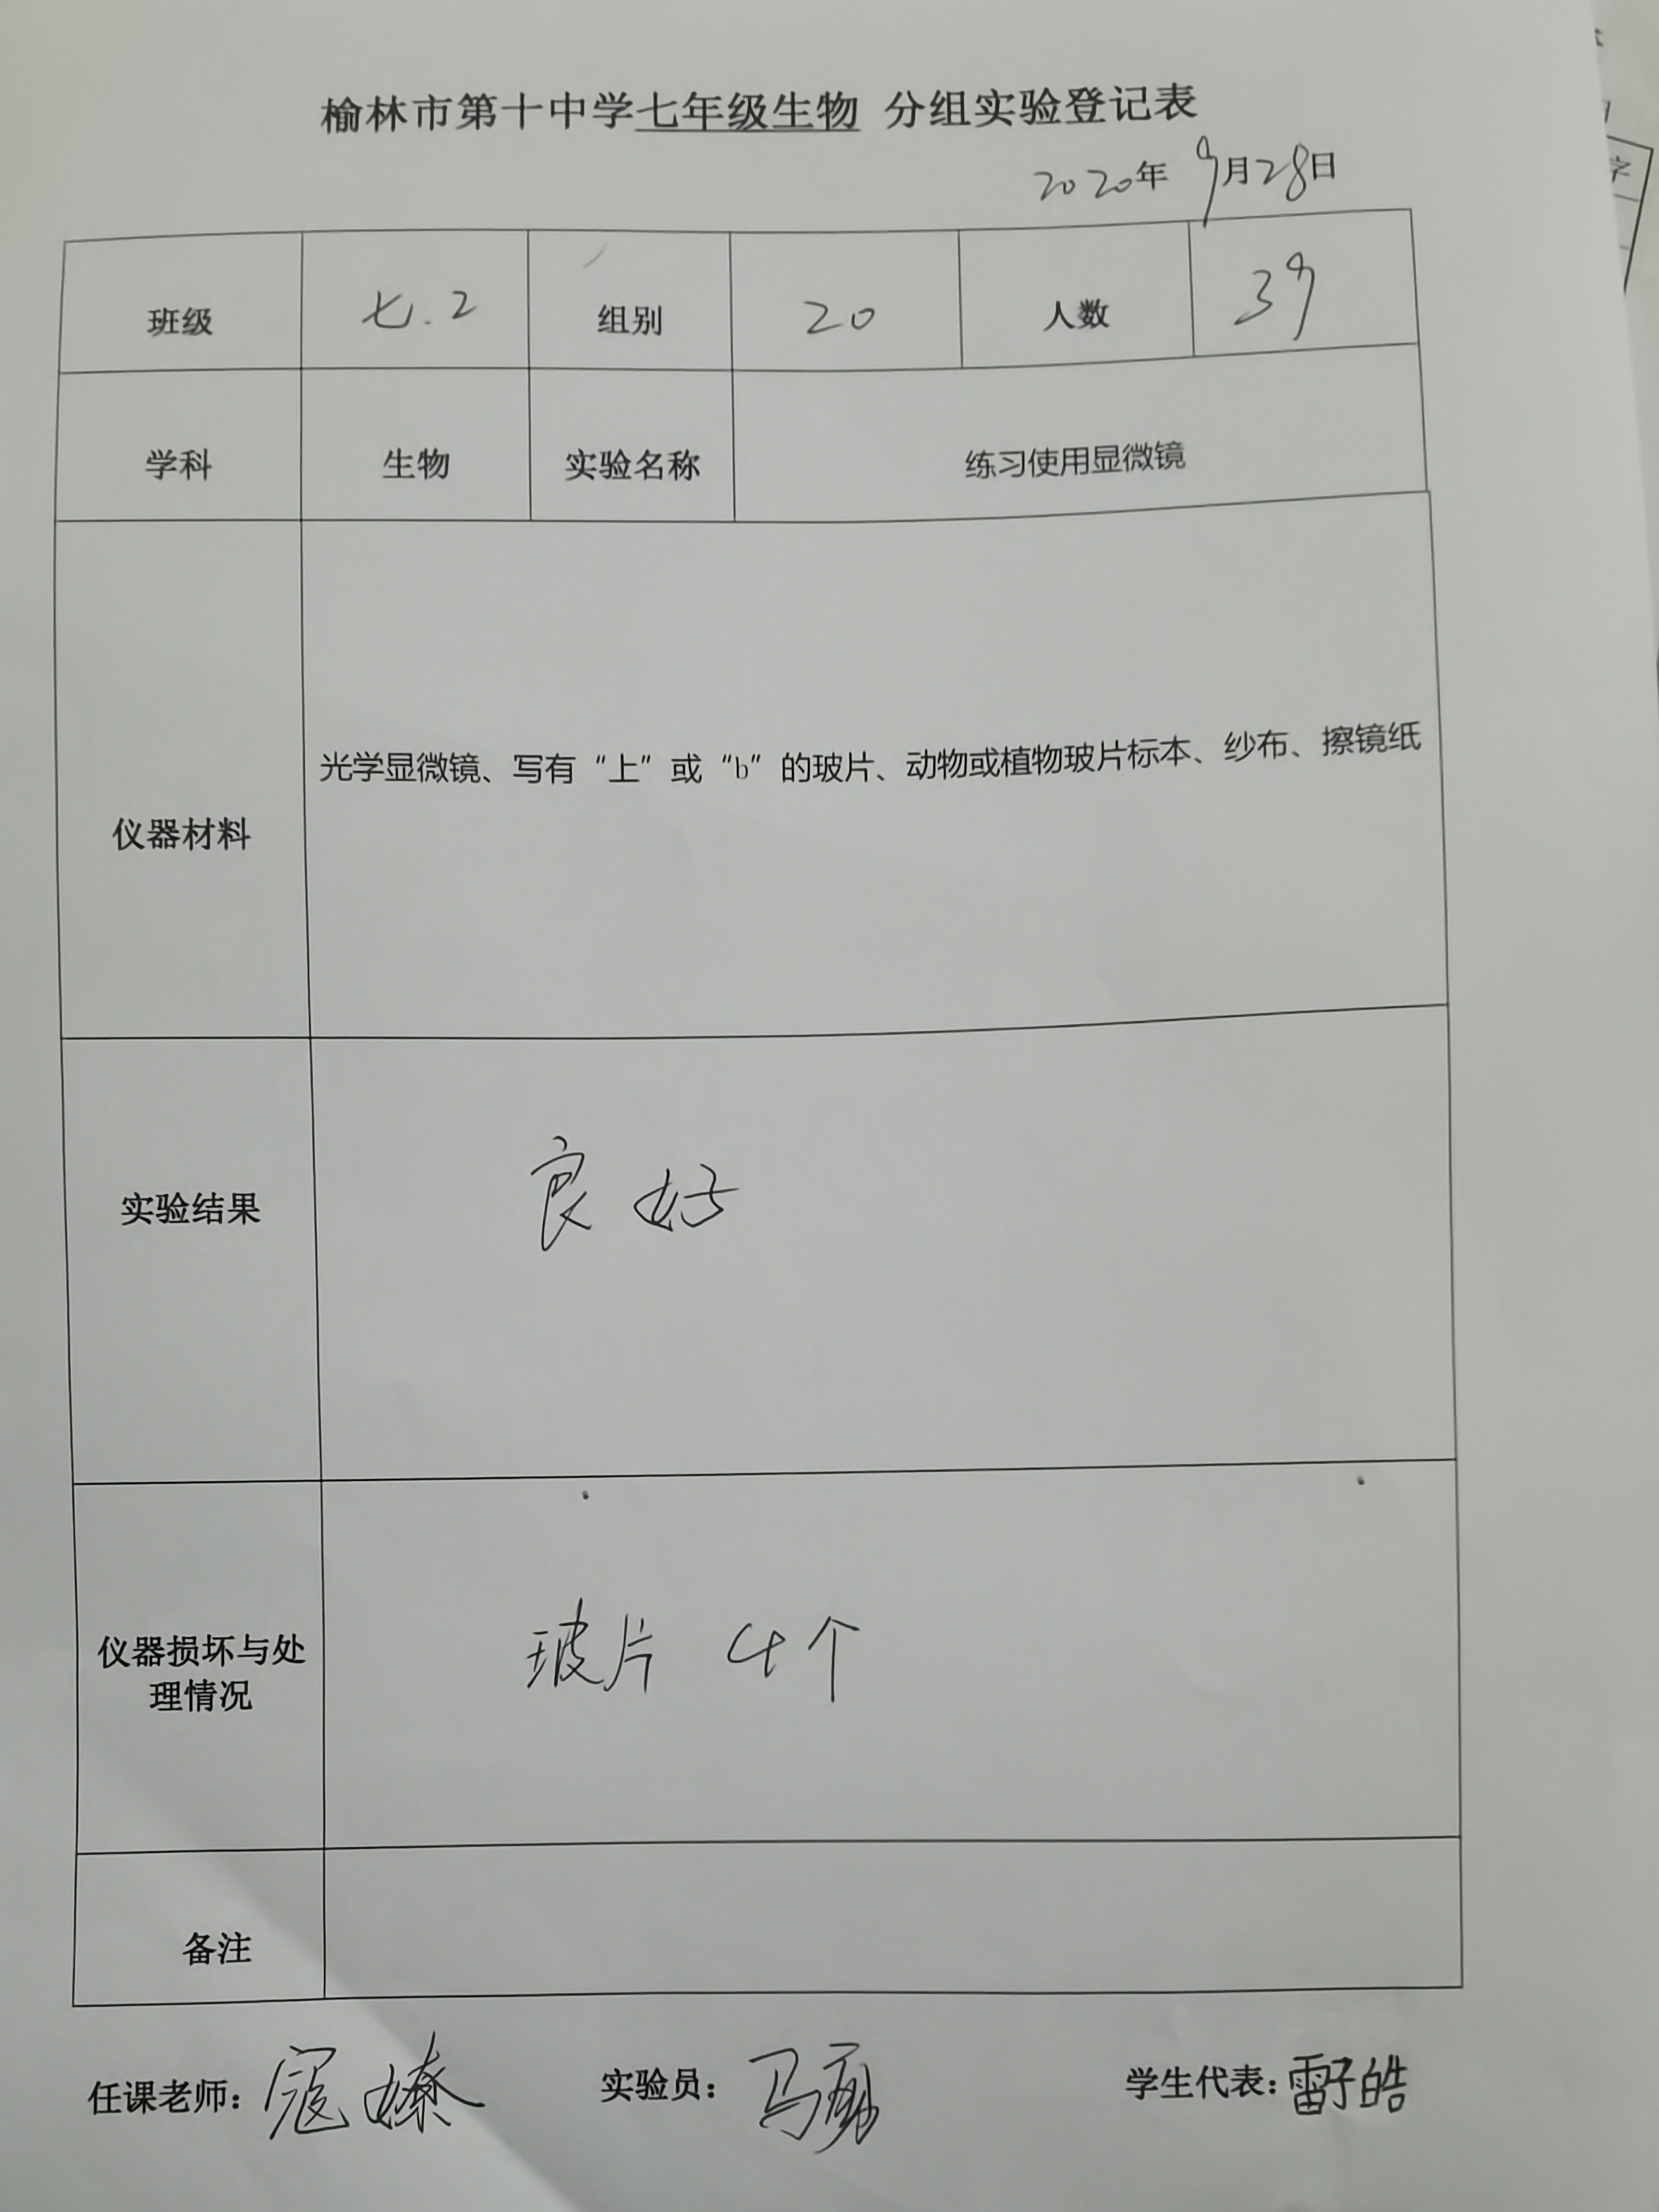 榆林市第十中学七年级生物 分组实验登记表
2020年 9月28日
班级 七.2 组别 20 人数 39
学科 生物 实验名称 练习使用显微镜
仪器材料 光学显微镜、写有“上”或“b”的玻片、动物或植物玻片标本、纱布、擦镜纸
实验结果 良好
仪器损坏与处
理情况
玻片 4个
备注
任课老师: 寇嫽 实验员: 马 学生代表: 雷子皓
字